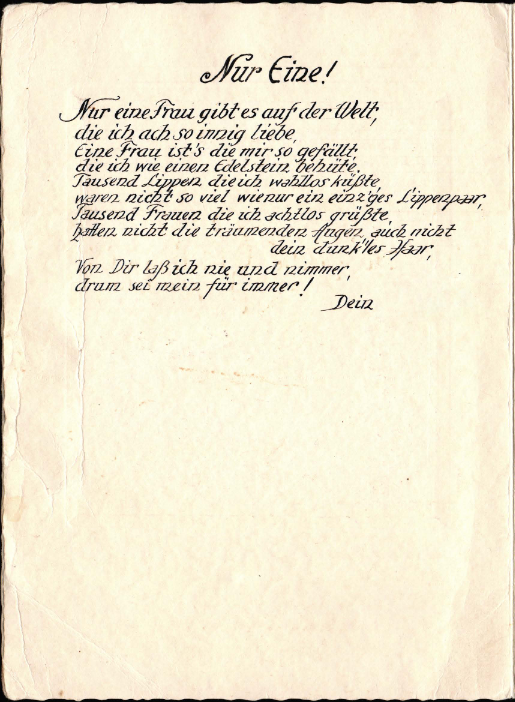 Nur Eine!
Nur eine Frau gibt es auf der Welt,
die ich ach so innig liebe,
Eine Frau ist's die mir so gefällt,
die ich wie einen Edelstein behüte.
Tausend Lippen die ich wahllos küßte,
waren nicht so viel wie nur ein einz'ges Lippenpaar,
Tausend Frauen die ich achtlos grüßte,
hatten nicht die träumenden Augen, auch nicht
dein dunk'les Haar,
Von Dir laß ich nie und nimmer,
drum sei mein für immer!
Dein